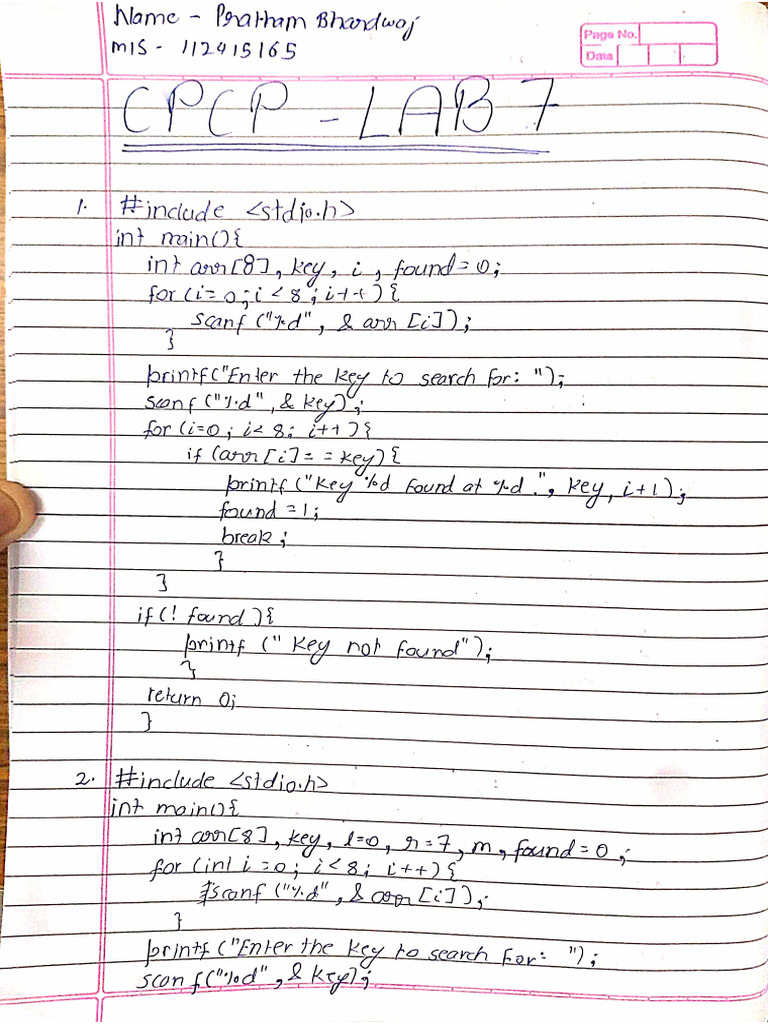 Name - Pratham Bhardwaj
MIS - 112415165
Page No.
Date
CPCP - LAB 7
1. #include <stdio.h>
int main(){
int arr[8], key, i, found=0;
for(i=0;i<8;i++){
scanf("%d", &arr[i]);
}
printf("Enter the key to search for: ");
scanf("%d", &key);
for(i=0; i<8; i++){
if(arr[i]==key){
printf("Key %d found at %d.", key, i+1);
found=1;
break;
}
}
if(!found){
printf("Key not found");
}
return 0;
}
2. #include <stdio.h>
int main(){
int arr[8], key, l=0, r=7, m, found=0;
for(int i=0; i<8; i++){
scanf("%d", &arr[i]);
}
printf("Enter the key to search for: ");
scanf("%d", &key);